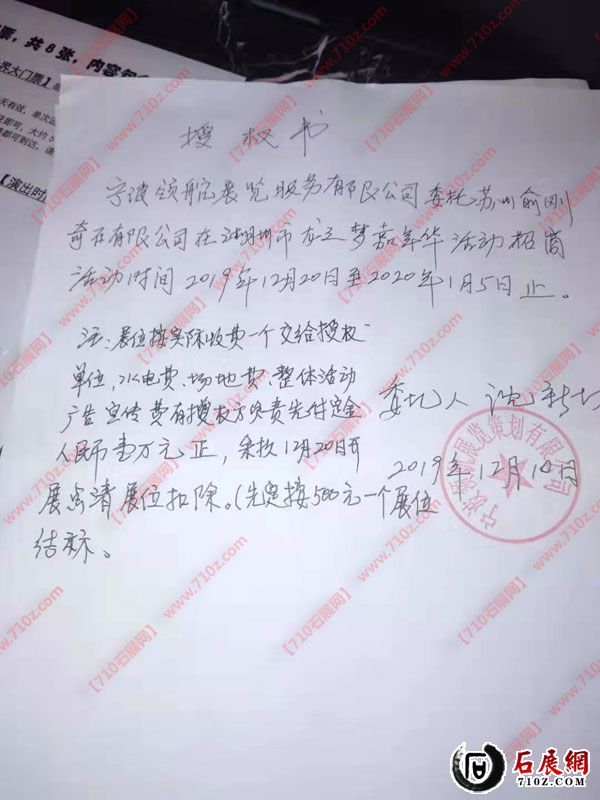 票，共8张，内容包
界大门票】
【演出时
授权书
宁波领航展览服务有限公司委托苏州俞刚
奇石有限公司在湖州市龙之梦嘉年华活动招商
活动时间2019年12月20日至2020年1月5日止。
注：展位按实际收费一个交给授权
单位，水电费、场地费、整体活动
广告宣传费有授权方负责先付定金
人民币壹万元正，来抵12月20日开
展点清展位扣除。（先定按500元一个展位
结算。
委托人 沈
2019年12月10日
展览策划有限公司
【710石展网】www.710z.com
石展網
710Z.COM